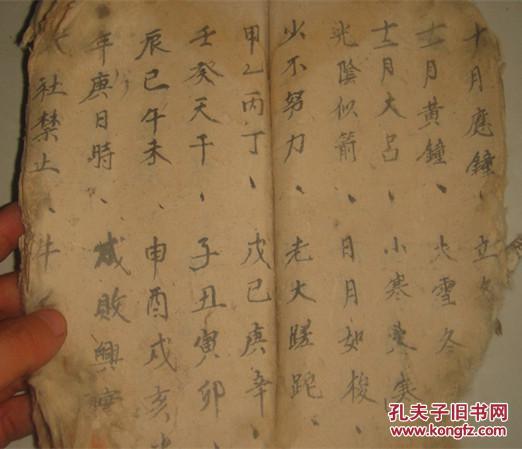 十月應鐘、立
十一月黃鐘、大雪冬
十二月大呂、小寒大寒
光陰似箭、日月如梭、
少不努力、老大蹉跎、
甲乙丙丁、戊己庚辛、
壬癸天干、子丑寅卯、
辰巳午未、申酉戌亥
年庚日時、成敗興
社禁止、牛
孔夫子旧书网
www.kongfz.com